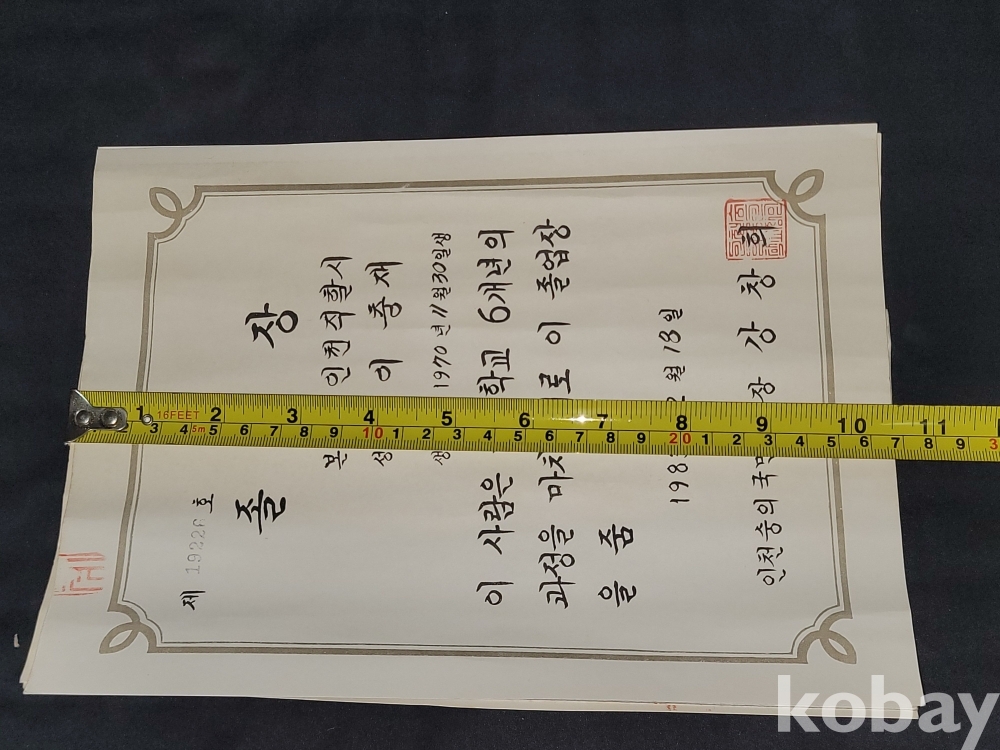 제 19226 호
졸 장
본 인천직할시
성 이 중 재
생 1970년 11월 30일생
이 사람은 학교 6개년의
과정을 마치 로 이 졸업장
을 줌
198 월 18일
인천숭의국민 장 강 창 희
16FEET
1 2 3 4 5 6 7 8 9 10 11
3 4 5m 5 6 7 8 9 10 1 2 3 4 5 6 7 8 9 20 1 2 3 4 5 6 7 8 9 3
kobay